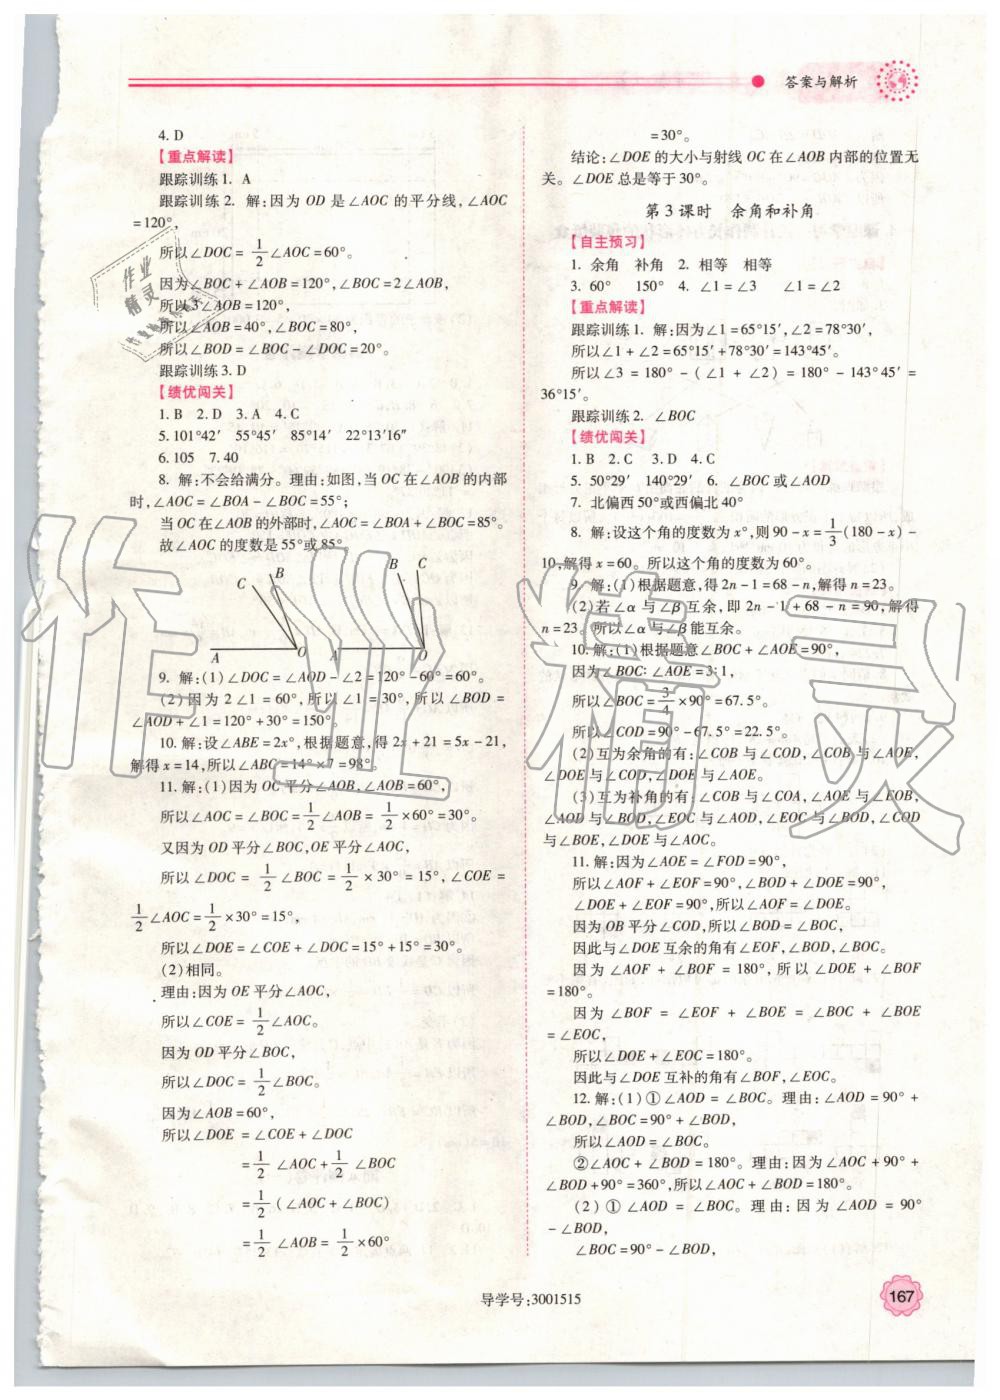 答案与解析
4. D
【重点解读】
跟踪训练1. A
跟踪训练2. 解:因为 OD 是∠AOC 的平分线,∠AOC
=120°,
所以∠DOC=1/2∠AOC=60°。
因为∠BOC+∠AOB=120°,∠BOC=2∠AOB,
所以3∠AOB=120°,
所以∠AOB=40°,∠BOC=80°,
所以∠BOD=∠BOC-∠DOC=20°。
跟踪训练3. D
【绩优闯关】
1. B 2. D 3. A 4. C
5. 101°42′ 55°45′ 85°14′ 22°13′16″
6. 105 7. 40
8. 解:不会给满分。理由:如图,当OC在∠AOB的内部
时,∠AOC=∠BOA-∠BOC=55°;
当OC在∠AOB的外部时,∠AOC=∠BOA+∠BOC=85°。
故∠AOC的度数是55°或85°。
C B A O
B C A O
9. 解:(1)∠DOC=∠AOD-∠2=120°-60°=60°。
(2)因为2∠1=60°,所以∠1=30°,所以∠BOD=
∠AOD+∠1=120°+30°=150°。
10. 解:设∠ABE=2x°,根据题意,得2x+21=5x-21,
解得x=14,所以∠ABC=14°×7=98°。
11. 解:(1)因为OC平分∠AOB,∠AOB=60°,
所以∠AOC=∠BOC=1/2∠AOB=1/2×60°=30°。
又因为OD平分∠BOC,OE平分∠AOC,
所以∠DOC=1/2∠BOC=1/2×30°=15°,∠COE=
1/2∠AOC=1/2×30°=15°,
所以∠DOE=∠COE+∠DOC=15°+15°=30°。
(2)相同。
理由:因为OE平分∠AOC,
所以∠COE=1/2∠AOC。
因为OD平分∠BOC,
所以∠DOC=1/2∠BOC。
因为∠AOB=60°,
所以∠DOE=∠COE+∠DOC
=1/2∠AOC+1/2∠BOC
=1/2(∠AOC+∠BOC)
=1/2∠AOB=1/2×60°
=30°。
结论:∠DOE的大小与射线OC在∠AOB内部的位置无
关。∠DOE总是等于30°。
第3课时 余角和补角
【自主预习】
1. 余角 补角 2. 相等 相等
3. 60° 150° 4. ∠1=∠3 ∠1=∠2
【重点解读】
跟踪训练1. 解:因为∠1=65°15′,∠2=78°30′,
所以∠1+∠2=65°15′+78°30′=143°45′。
所以∠3=180°-(∠1+∠2)=180°-143°45′=
36°15′。
跟踪训练2. ∠BOC
【绩优闯关】
1. B 2. C 3. D 4. C
5. 50°29′ 140°29′ 6. ∠BOC或∠AOD
7. 北偏西50°或西偏北40°
8. 解:设这个角的度数为x°,则90-x=1/3(180-x)-
10,解得x=60。所以这个角的度数为60°。
9. 解:(1)根据题意,得2n-1=68-n,解得n=23。
(2)若∠α与∠β互余,即2n-1+68-n=90,解得
n=23。所以∠α与∠β能互余。
10. 解:(1)根据题意∠BOC+∠AOE=90°,
因为∠BOC:∠AOE=3:1,
所以∠BOC=3/4×90°=67.5°。
所以∠COD=90°-67.5°=22.5°。
(2)互为余角的有:∠COB与∠COD,∠COB与∠AOE,
∠DOE与∠COD,∠DOE与∠AOE。
(3)互为补角的有:∠COB与∠COA,∠AOE与∠EOB,
∠AOD与∠BOD,∠EOC与∠AOD,∠EOC与∠BOD,∠COD
与∠BOE,∠DOE与∠AOC。
11. 解:因为∠AOE=∠FOD=90°,
所以∠AOF+∠EOF=90°,∠BOD+∠DOE=90°,
∠DOE+∠EOF=90°,所以∠AOF=∠DOE。
因为OB平分∠COD,所以∠BOD=∠BOC,
因此与∠DOE互余的角有∠EOF,∠BOD,∠BOC。
因为∠AOF+∠BOF=180°,所以∠DOE+∠BOF
=180°。
因为∠BOF=∠EOF+∠BOE=∠BOC+∠BOE
=∠EOC,
所以∠DOE+∠EOC=180°。
因此与∠DOE互补的角有∠BOF,∠EOC。
12. 解:(1)①∠AOD=∠BOC。理由:∠AOD=90°+
∠BOD,∠BOC=90°+∠BOD,
所以∠AOD=∠BOC。
②∠AOC+∠BOD=180°。理由:因为∠AOC+90°+
∠BOD+90°=360°,所以∠AOC+∠BOD=180°。
(2)①∠AOD=∠BOC。理由:因为∠AOD=90°
-∠BOD,
∠BOC=90°-∠BOD,
导学号:3001515
167
作业精灵
作业
精灵